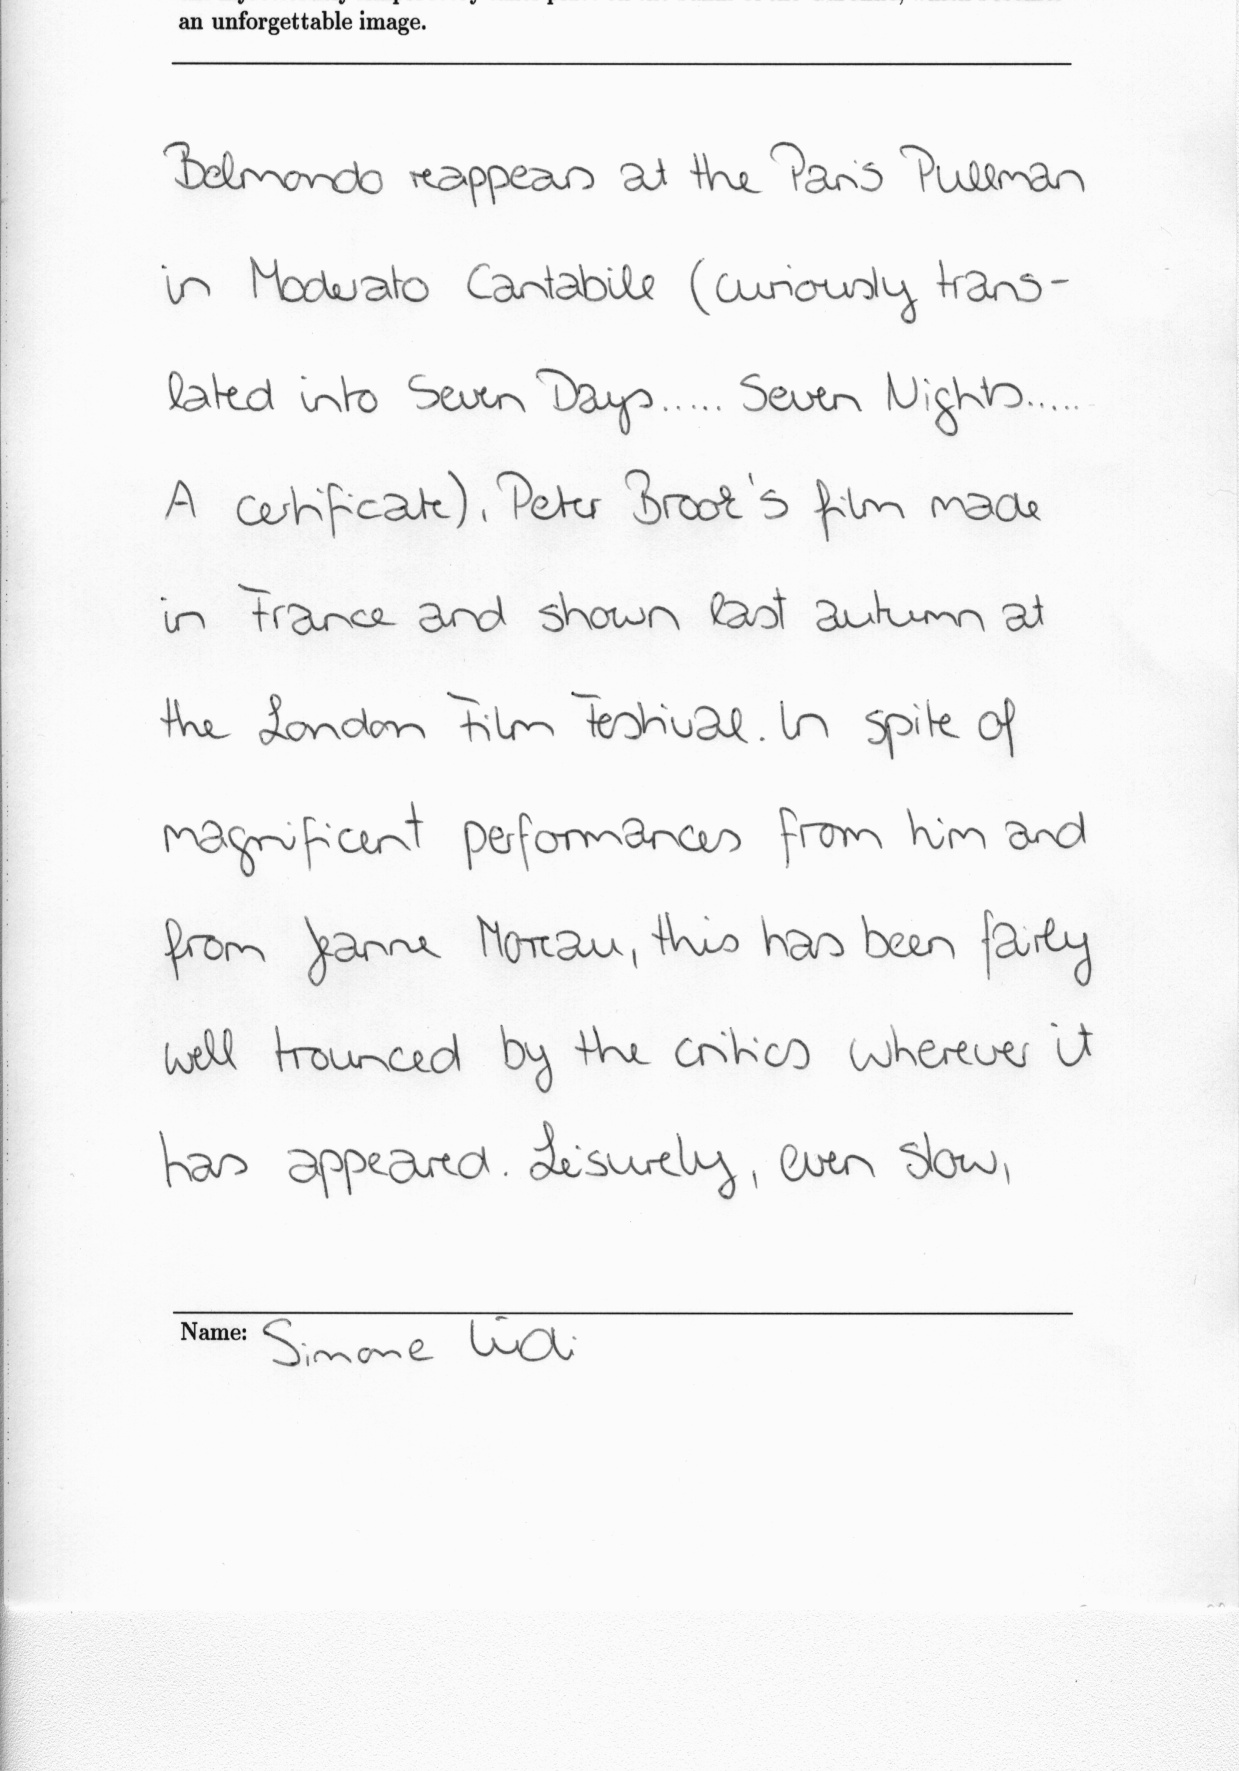 an unforgettable image.
Belmondo reappears at the Paris Pullman
in Moderato Cantabile (curiously trans-
lated into Seven Days..... Seven Nights.....
A certificate), Peter Brook's film made
in France and shown last autumn at
the London Film Festival. In spite of
magnificent performances from him and
from Jeanne Moreau, this has been fairly
well trounced by the critics wherever it
has appeared. Leisurely, even slow,
Name: Simone Lüdi